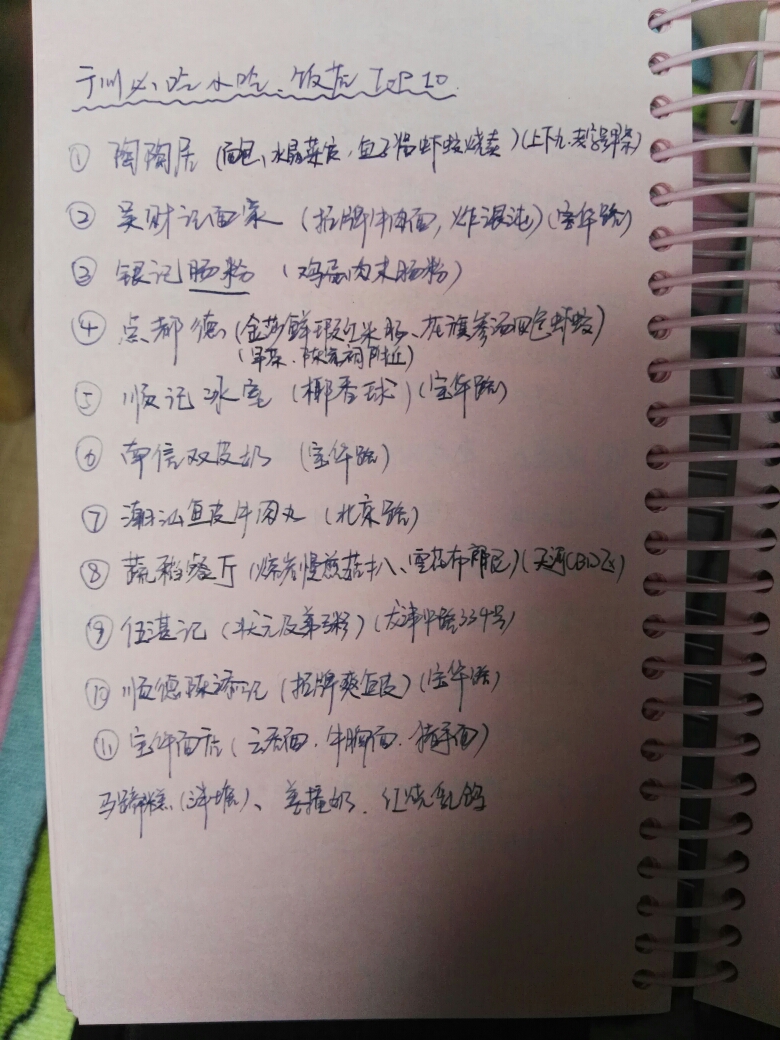 广州必吃小吃、饭店 TOP 10
① 陶陶居 (面包、水晶菜 虾饺烧卖) (上下九.
② 吴财记面家 (招牌牛肉面, 炸混沌) (宝华路)
③ 银记肠粉 (鸡蛋肉末肠粉)
④ 点都德 (金莎 米肠、花旗参汤四色虾饺)
(早茶. 陈家祠附近)
⑤ 顺记冰室 (椰香球) (宝华路)
⑥ 南信双皮奶 (宝华路)
⑦ 潮汕鱼皮牛肉丸 (北京路)
⑧ 蔬 餐厅 (慢煎菇扒、雪花布朗尼) (天河CBD区)
⑨ 伍湛记 (状元及第粥) (龙津中路334号)
⑩ 顺德陈添记 (招牌爽鱼皮) (宝华路)
⑪ 宝华面店 (云吞面. 牛腩面. 猪手面)
马蹄糕 (泮塘)、姜撞奶. 红烧乳鸽